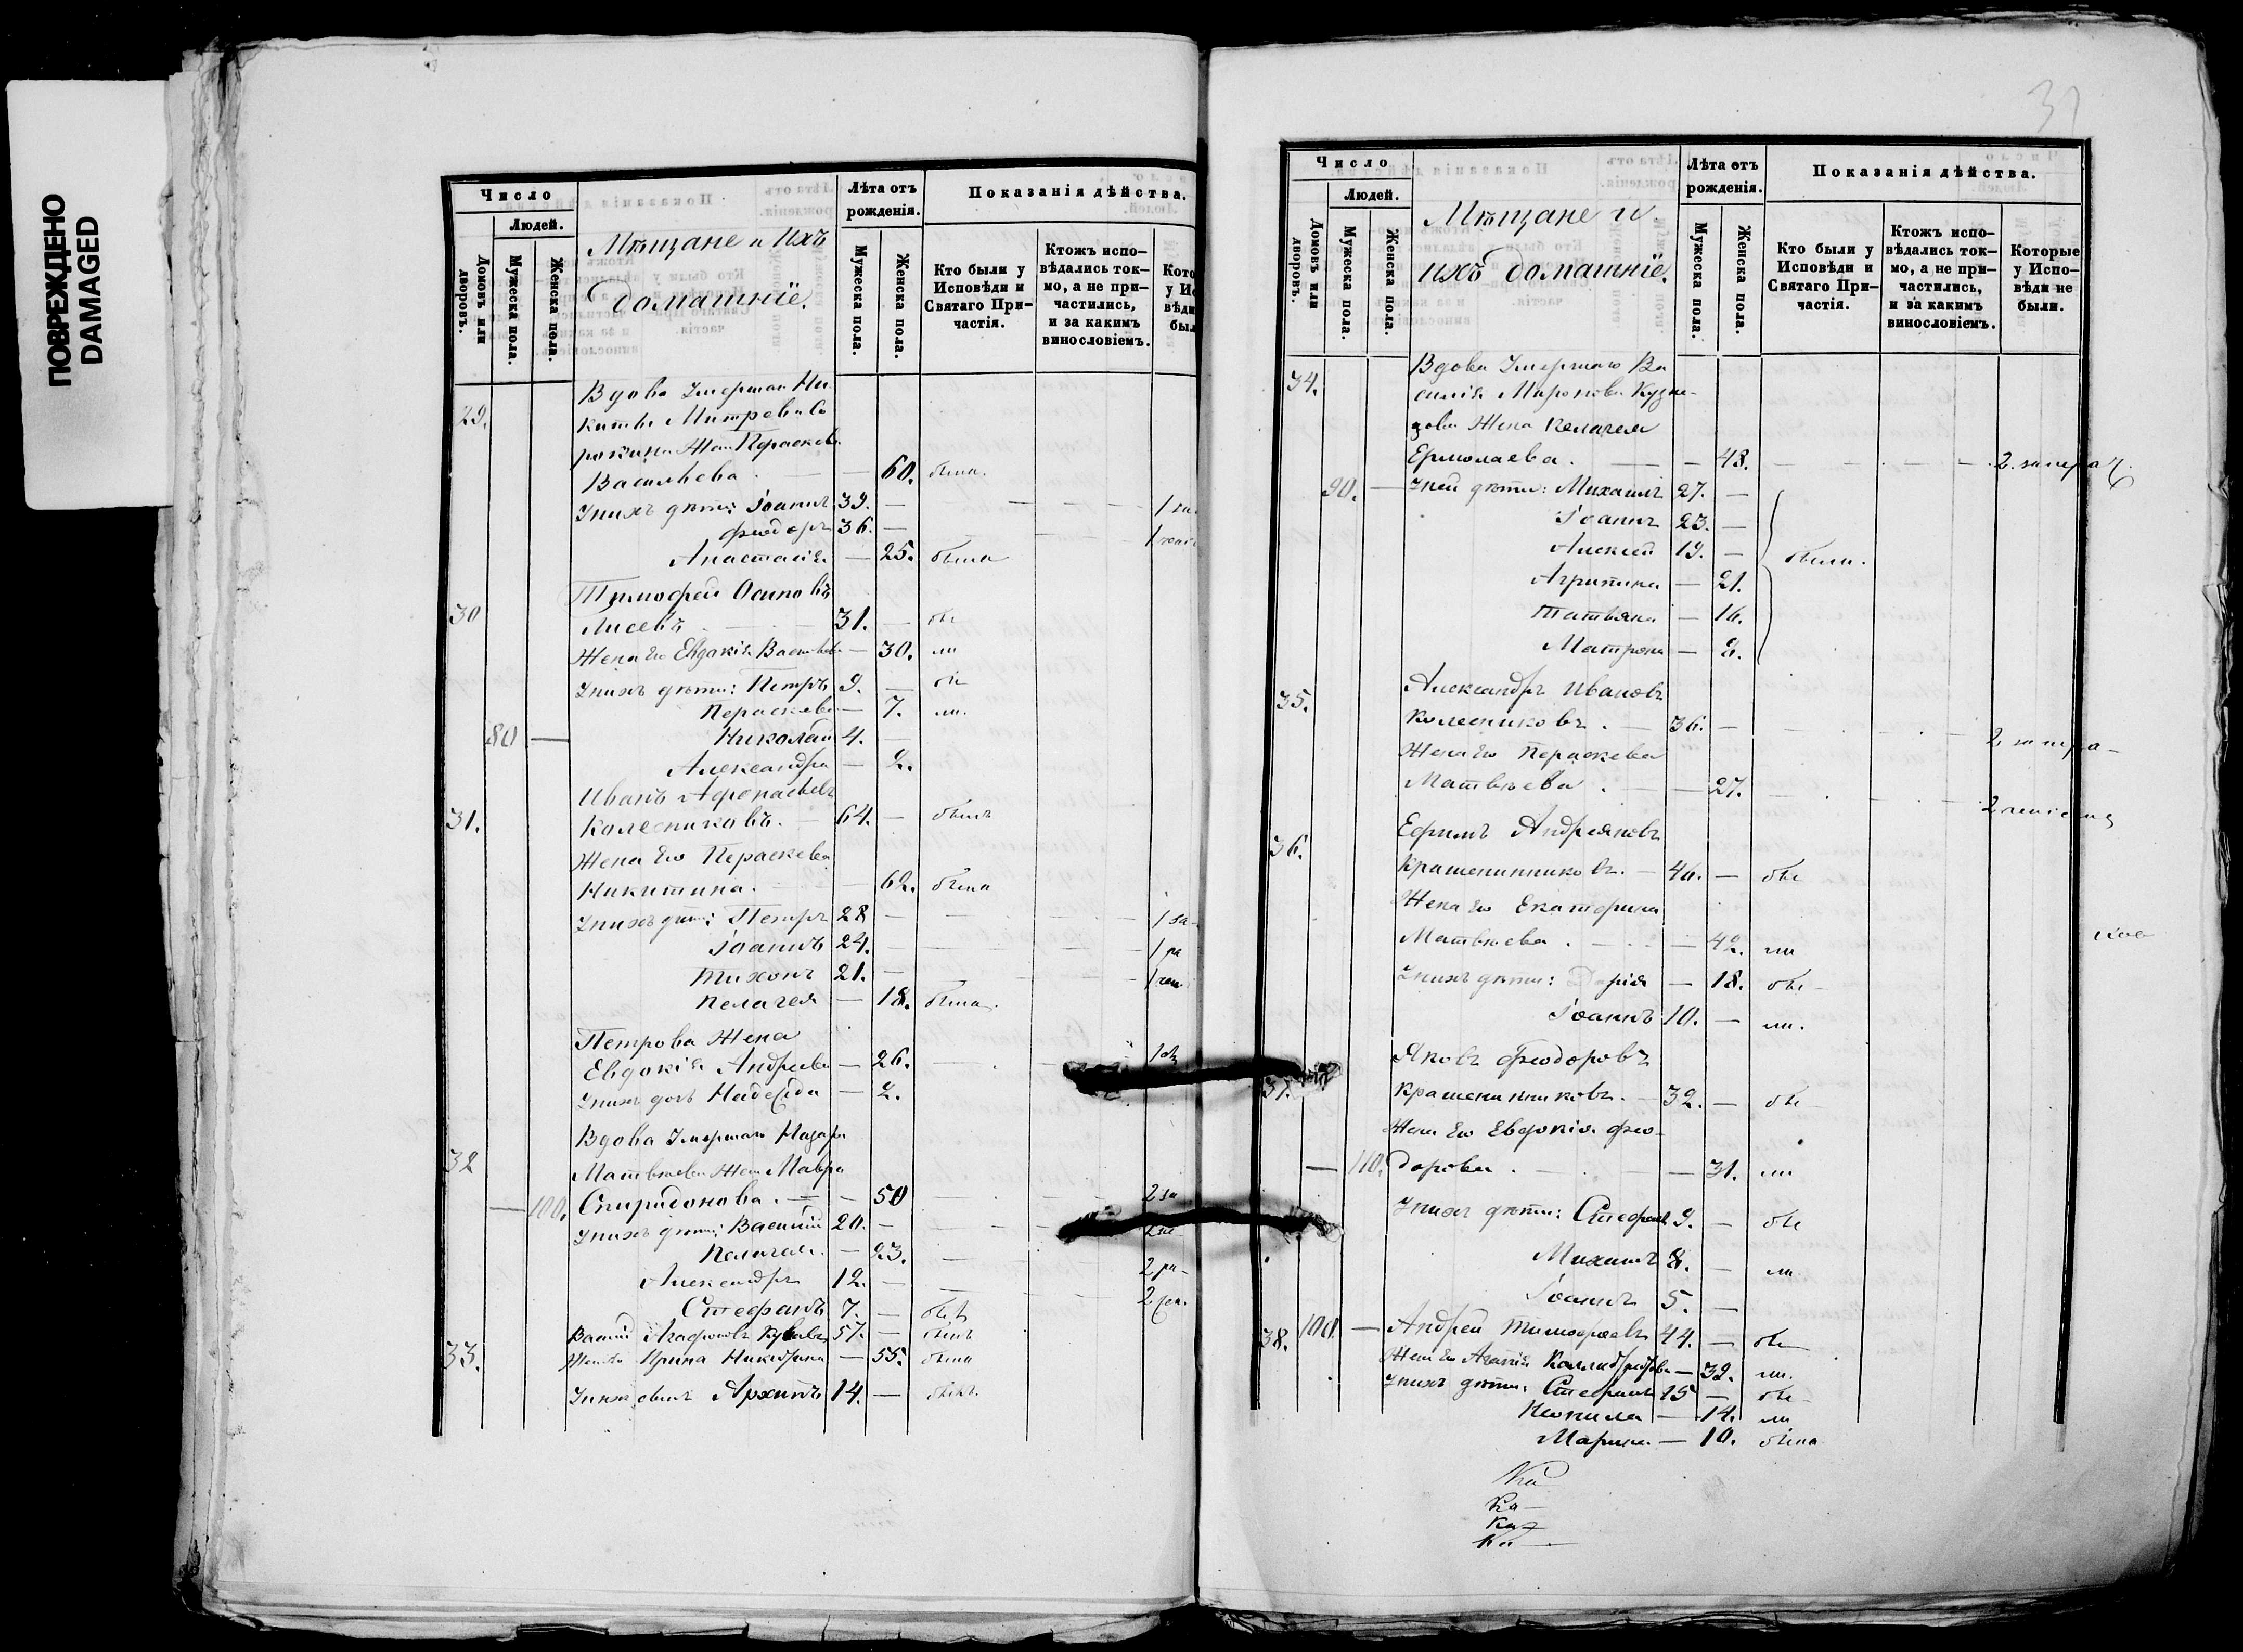 ПОВРЕЖДЕНО
DAMAGED
Число
Людей.
Домовъ или дворовъ.
Мужеска пола.
Женска пола.
Мѣщане и Ихъ
домашніе.
Лѣта отъ рожденія.
Мужеска пола.
Женска пола.
Показанія дѣйства.
Кто были у Исповѣди и Святаго Причастія.
Ктожъ исповѣдались токмо, а не причастились, и за какимъ винословіемъ.
Вдова Умершаго Ни
29. киты Митрева Со
рокина Жена Параскева
Васильева. — 60. была.
У нихъ дѣти: Іоаннъ 39. —
Феодоръ 36. —
Анастасія — 25. была
Тимофей Осиповъ
30 Лисевъ 31. — бы
Жена Его Евдокія Васильева — 30. ли
У нихъ дѣти: Петръ 9. — бы
Параскева — 7. ли.
80 — Николай 4. —
Александра — 2.
Иванъ Афонасьевъ
31. Колесниковъ. — 64. — былъ
Жена Его Параскева
Никитина. — 62. была
У нихъ дѣти: Петръ 28 —
Іоаннъ 24. —
Тихонъ 21. —
Пелагея — 18. была.
Петрова Жена
Евдокія Андреева — 26.
У нихъ дочь Надежда — 2.
Вдова Умершаго Назара
32 Матвѣева Жена Мавра
— 100. Спиридонова. — 50
У нихъ дѣти: Василій 20. —
Пелагея — 23.
Александръ 12. —
Стефанъ 7. —
Василій Агафоновъ 57. — былъ
33. Жена Его Ирина — 55. была
У них сынъ Архипъ 14. — былъ.
31
Число
Людей.
Домовъ или дворовъ.
Мужеска пола.
Женска пола.
Мѣщане и
ихъ домашніе.
Лѣта отъ рожденія.
Мужеска пола.
Женска пола.
Показанія дѣйства.
Кто были у Исповѣди и Святаго Причастія.
Ктожъ исповѣдались токмо, а не причастились, и за какимъ винословіемъ.
Которые у Исповѣди не были.
34. Вдова Умершаго Ва
силія Миронова Кузне-
цова Жена Пелагея
Ермолаева. — 48.
90. — У ней дѣти: Михаилъ 27. —
Іоаннъ 23. —
Алексей 19. — были.
Агрипина — 21.
Татьяна — 16.
Матрона — 8.
Александръ Ивановъ
35. Колесниковъ. — 36. —
Жена Его Параскева
Матвѣева — 27.
Ефимъ Андреяновъ
36. Крашенинниковъ. — 46. — бы
Жена Его Екатерина
Матвѣева. — 42. ли
У нихъ дѣти: Дарія — 18. бы
Іоаннъ 10. — ли.
Яковъ Феодоровъ
37. Крашенинниковъ. — 32. — бы
Жена Его Евдокія Фео-
— 110. дорова. — 31. ли
У нихъ дѣти: Стефанъ 9. — бы
Михаилъ 8. — ли
Іоаннъ 5. —
38. 100 — Андрей Тимофеевъ 44. — бы
Жена Его — 32. ли.
У нихъ дѣти: Стефанъ 15 — бы
Неонила — 14. ли
Марина — 10. была